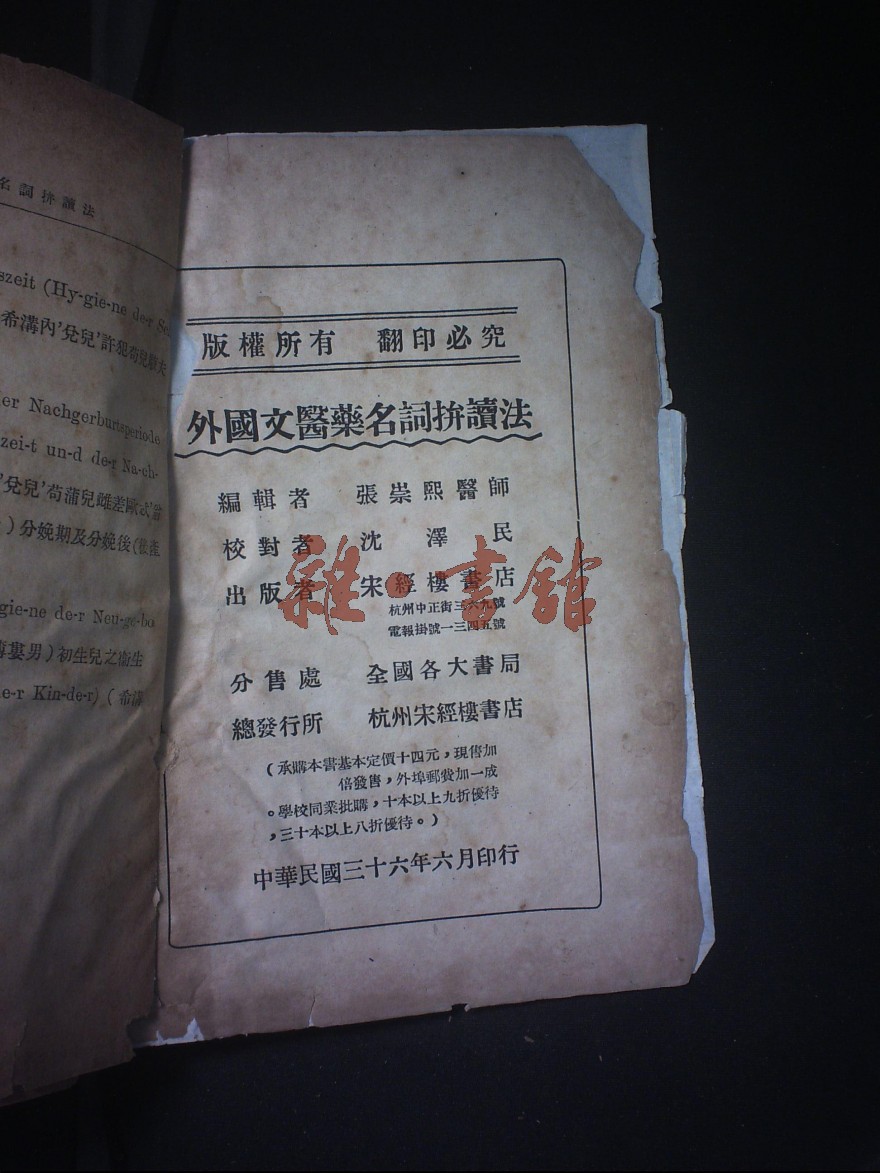 名詞拚讀法
szeit (Hy-gie-ne de-r Se
希溝內'兌兒'許犯苟兒
er Nachgerburtsperiode
zei-t un-d de-r Na-ch-
'兌兒'苟蒲兒雌差歐式
)分娩期及分娩後(
gie-ne de-r Neu-ge-bo
婁男)初生兒之衞生
e-r Kin-de-r) (希溝
版權所有 翻印必究
外國文醫藥名詞拚讀法
編輯者 張崇熙醫師
校對者 沈澤民
出版者 宋經樓書店
杭州中正街三六九號
電報掛號一三四五號
分售處 全國各大書局
總發行所 杭州宋經樓書店
(承購本書基本定價十四元,現售加
倍發售,外埠郵費加一成
。學校同業批購,十本以上九折優待
,三十本以上八折優待。)
中華民國三十六年六月印行
雜·書館